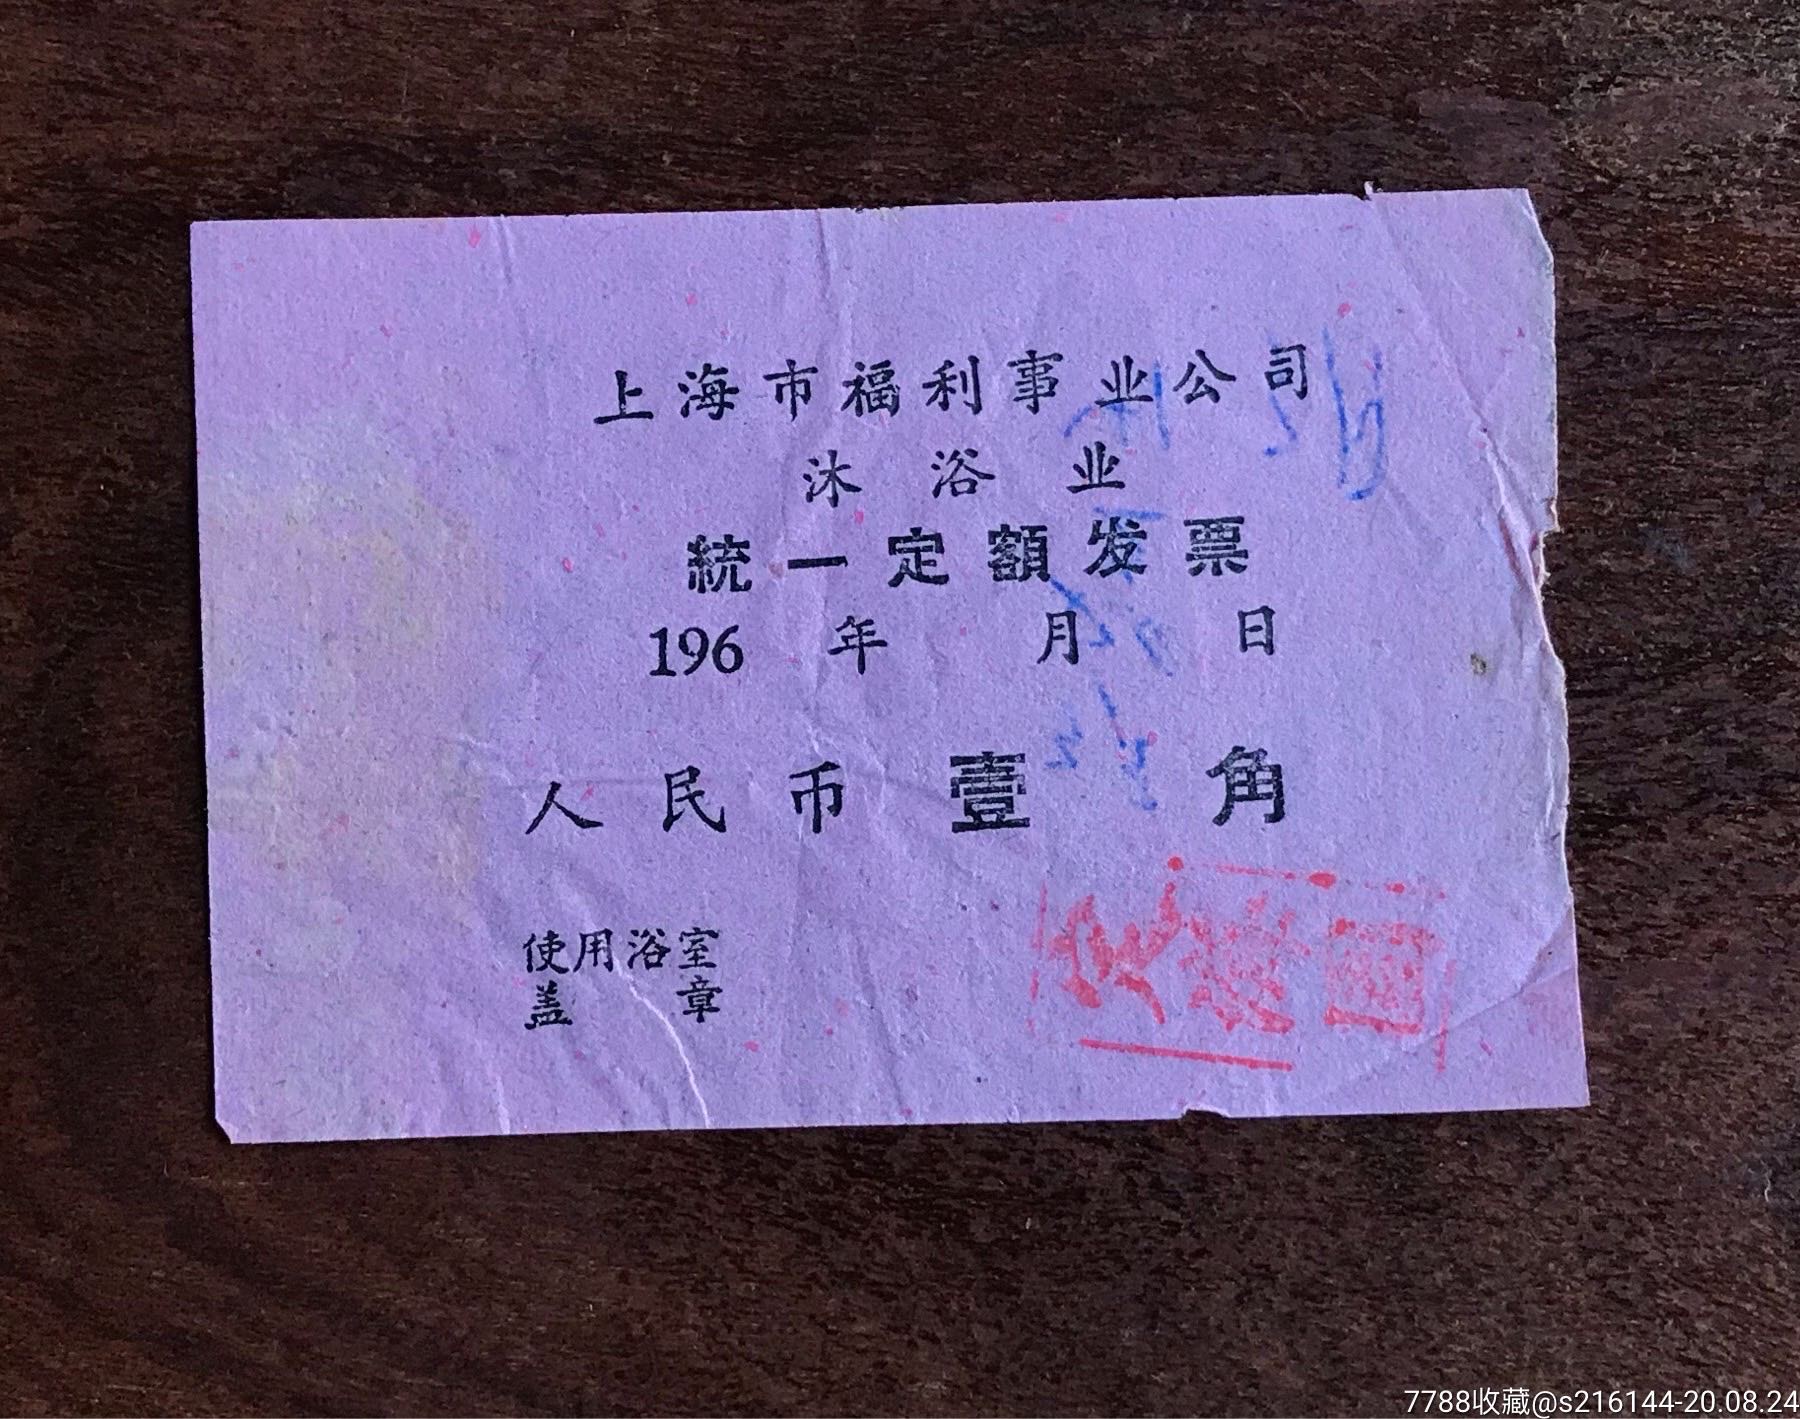 上海市福利事业公司
沐浴业
統一定額发票
196 年 月 日
人民币壹角
使用浴室
盖章
7788收藏@s216144-20.08.24